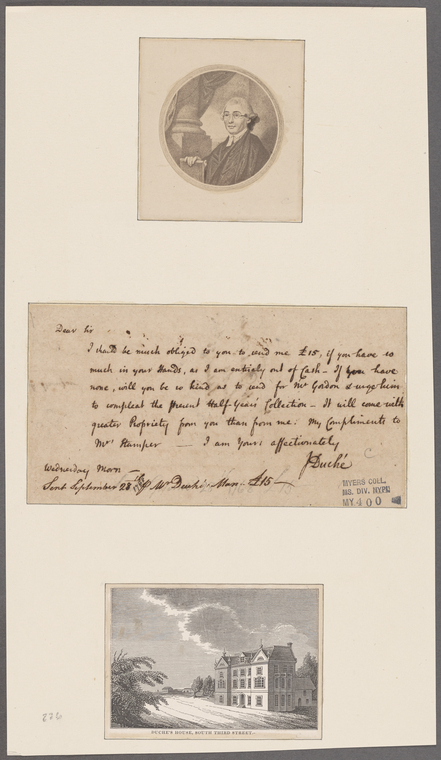 Dear Sir
I should be much obliged to you to send me £15, if you have so
much in your Hands, as I am entirely out of Cash – If you have
none, will you be so kind as to send for Mr Gordon & urge him
to compleat the Present Half Years Collection – It will come with
greater Propriety from you than from me. My Compliments to
Mrs Stamper — I am Yours affectionately
J Duché
Wednesday Morn –
Sent September 28th p Mr Duché's Man – £15 –
MYERS COLL.
MS. DIV. NYPL
MY 400
C
DUCHE'S HOUSE, SOUTH THIRD STREET.